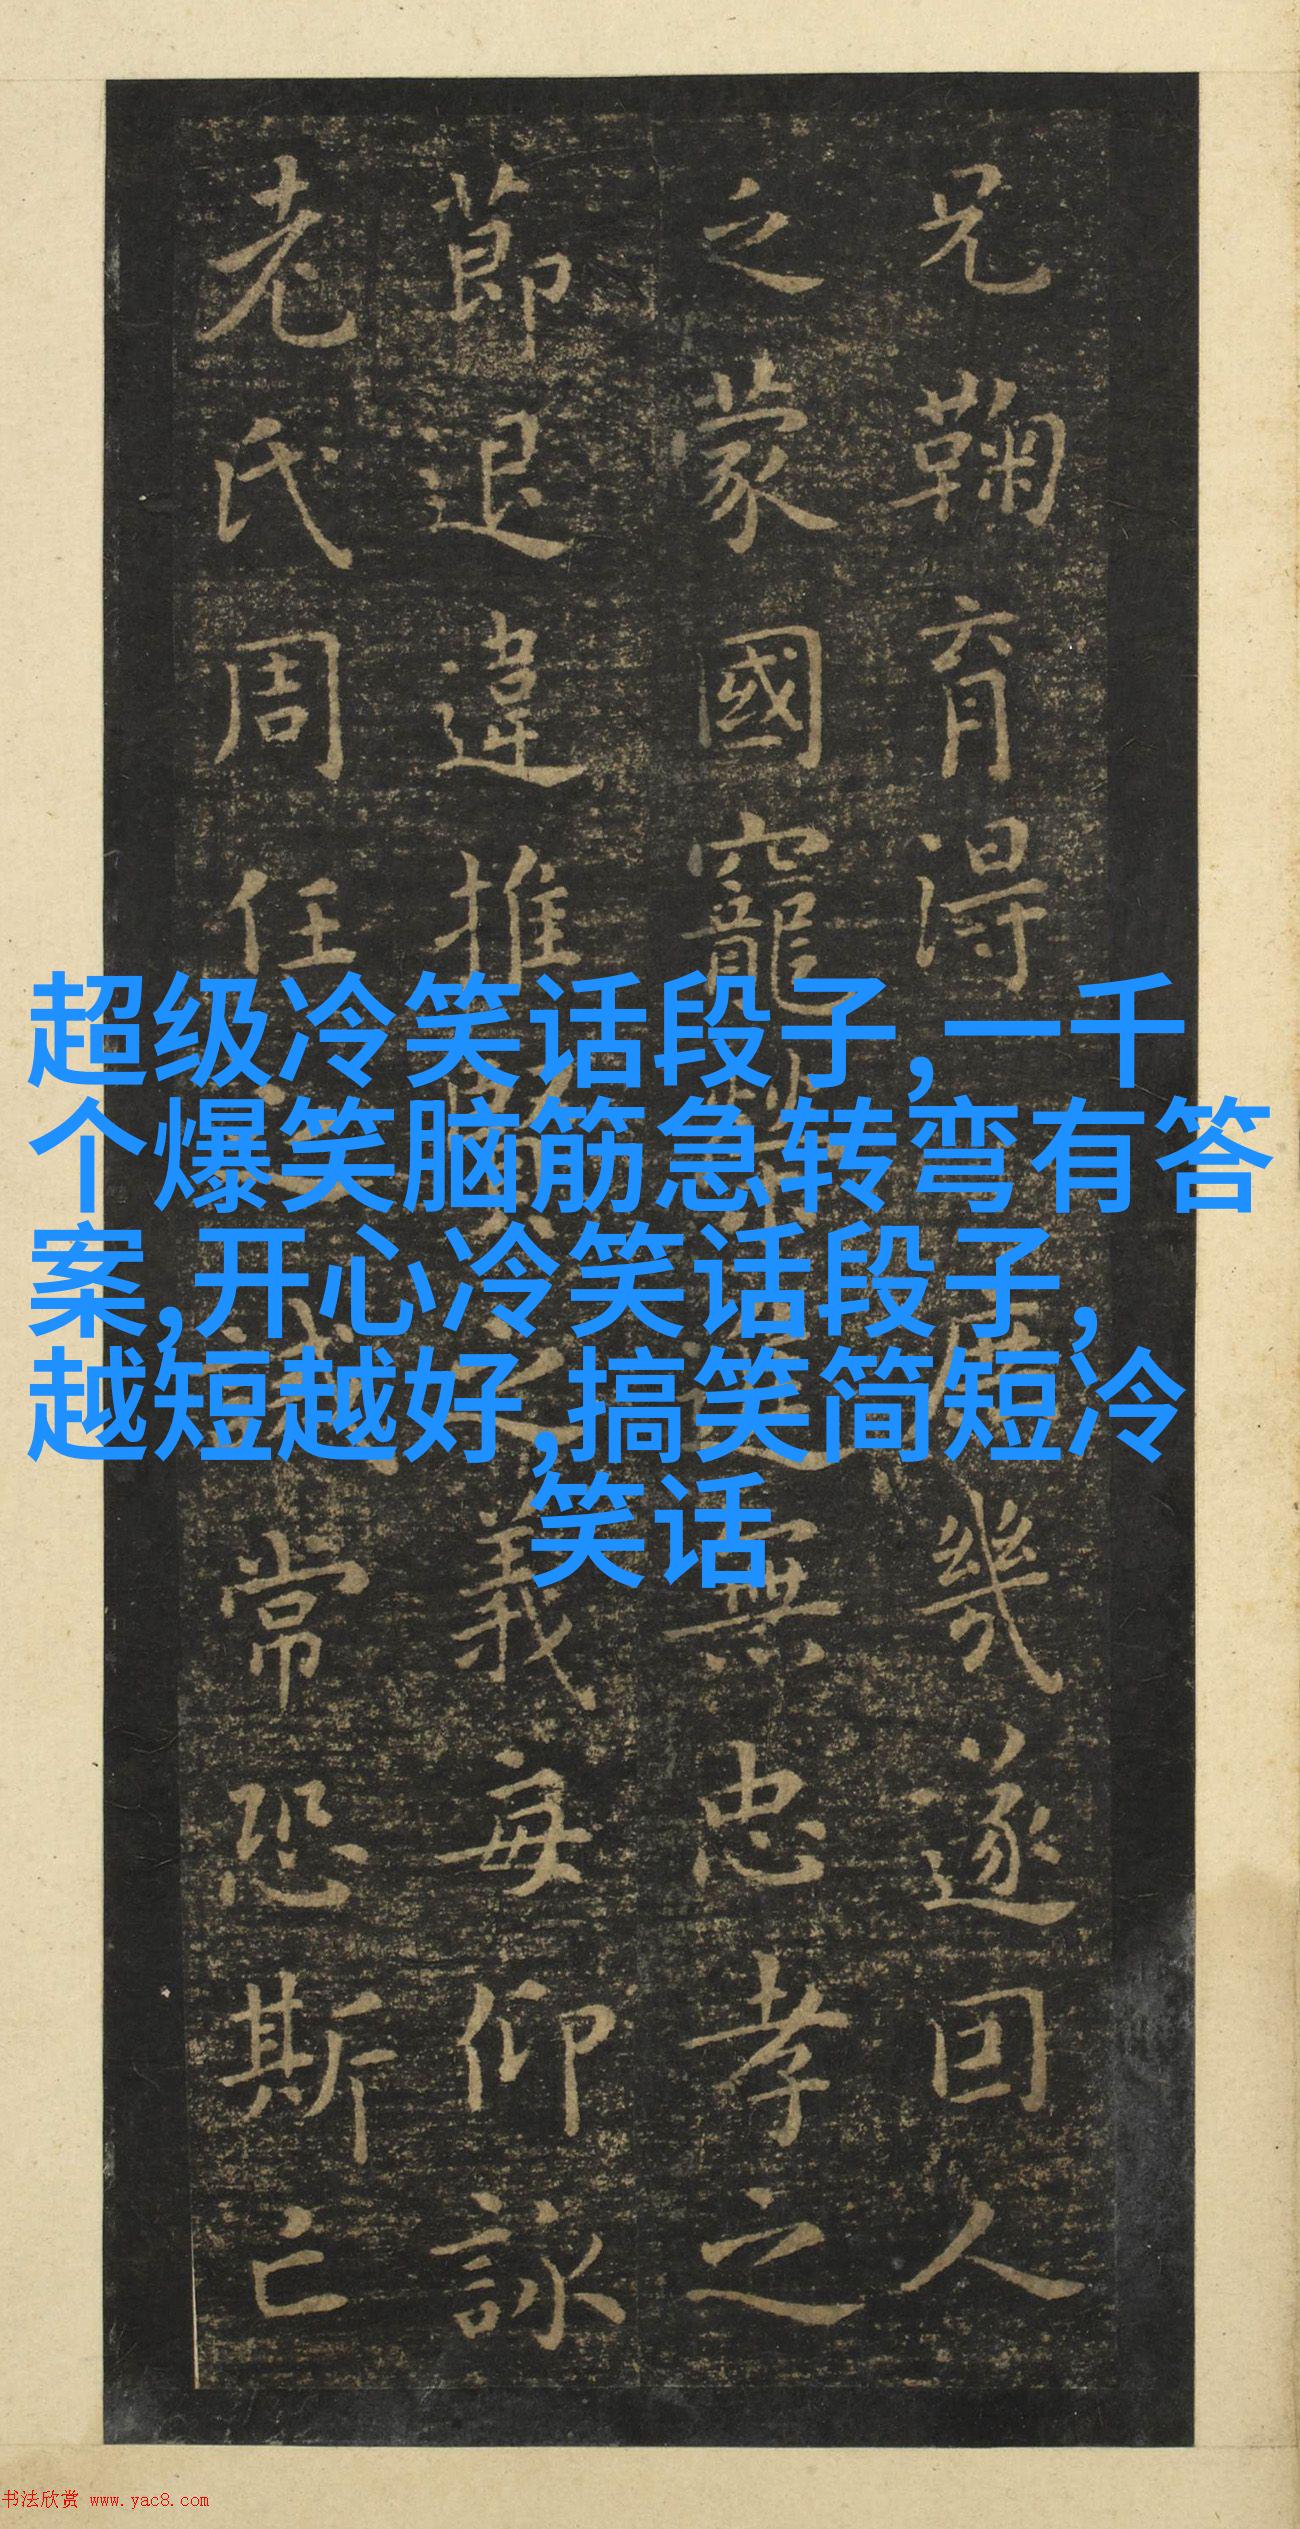 兄鞠育得庶幾遂因人
乏蒙國寵榮進無忠孝之
節退違推賢之義每仰詠
老氏周任之誡常恐斯亡
超级冷笑话段子,一千
个爆笑脑筋急转弯有答
案,开心冷笑话段子,
越短越好,搞笑简短冷
笑话
书法欣赏 www.yac8.com